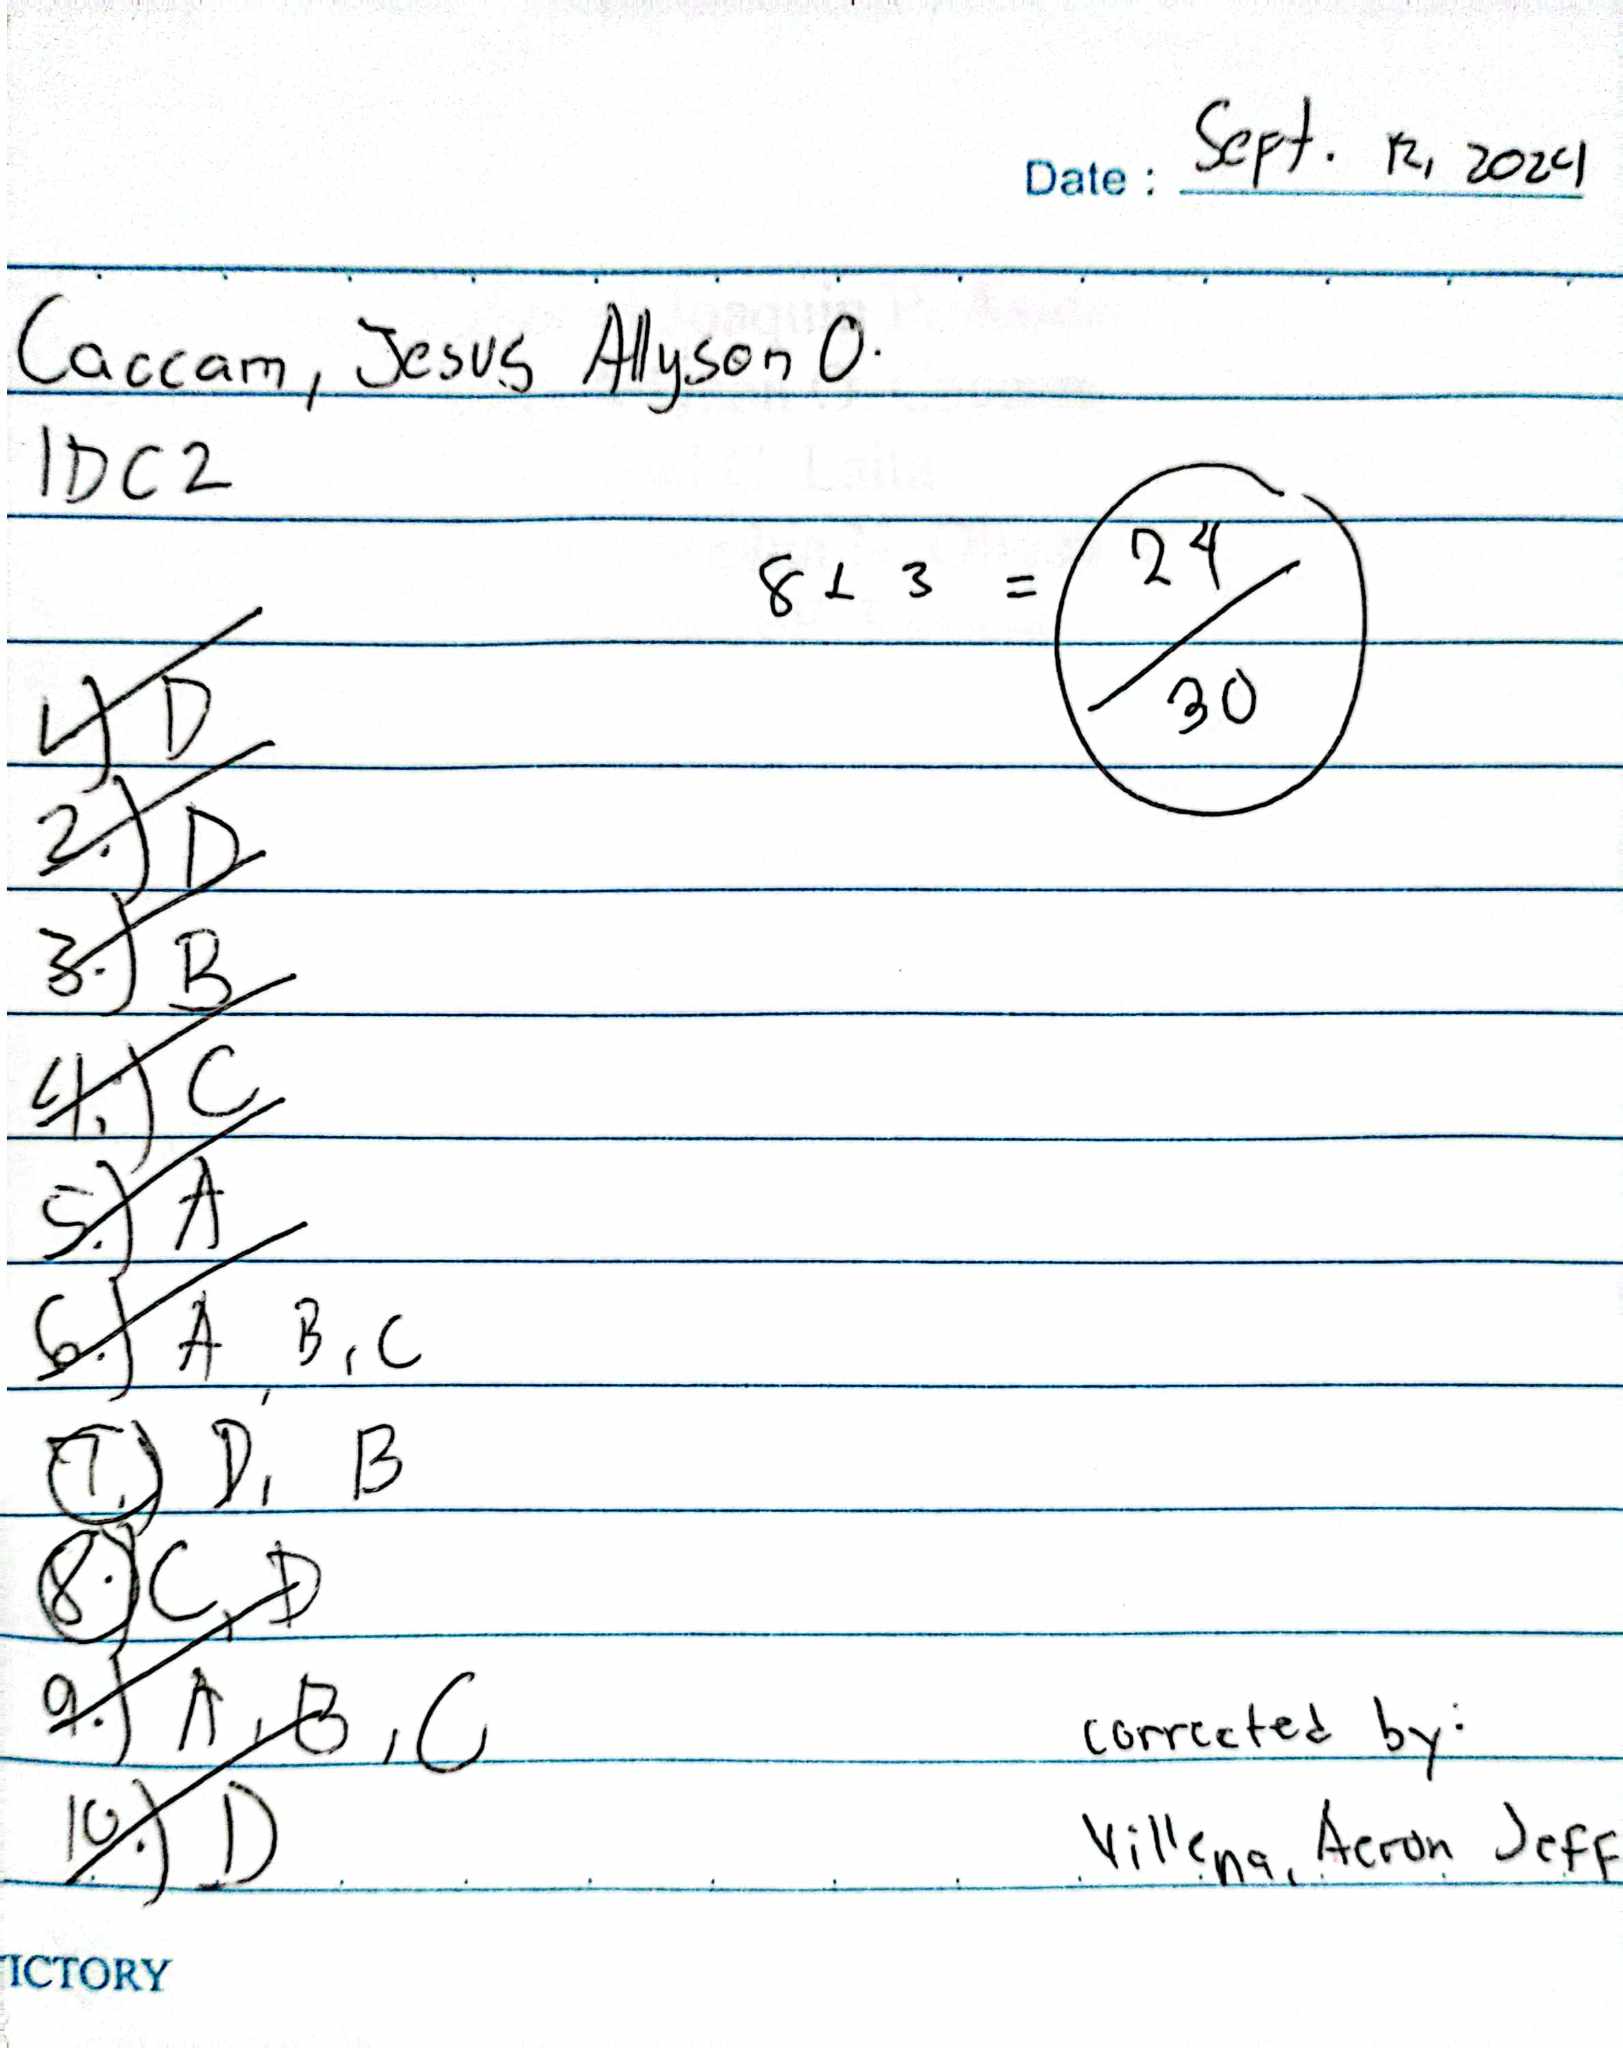 Date : Sept. 12, 2024
Caccam, Jesus Allyson O.
1DC2
8 x 3 = 24/30
1.) D
2.) D
3.) B
4.) C
5.) A
6.) A, B, C
7.) D, B
8.) C, D
9.) A, B, C
10.) D
corrected by:
Villena, Aeron Jeff
ICTORY